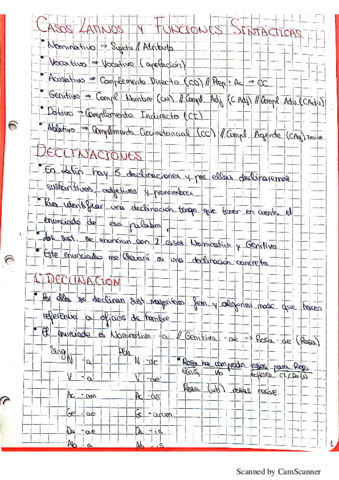 CASOS LATINOS Y FUNCIONES SINTÁCTICAS
• Nominativo → Sujeto // Atributo
• Vocativo → Vocativo (apelación)
• Acusativo → Complemento Directo (CD) // Prep + Ac → CC
• Genitivo → Compl. Nombre (CN) // Compl. Adj (C Adj) // Compl Adv (CAdv)
• Dativo → Complemento Indirecto (CI)
• Ablativo → Complemento Circunstancial (CC) // Compl. Agente (CAg)
DECLINACIONES
• En latín hay 5 declinaciones y por ellas declinaremos
sustantivos, adjetivos y pronombres
• Para identificar una declinación tengo que tener en cuenta el
enunciado de esa palabra.
• Los sust. se enuncian con 2 casos Nominativo y Genitivo
• Este enunciado me llevará a una declinación concreta
1. DECLINACIÓN
• Por ella se declinan sust. mayoritario fem y algunos masc. que hacen
referencia a oficios de hombre
• El enunciado es Nominativo - a // Genitivo - ae → Rosa - ae (Rosa)
Sing Plu
N - a N - ae
V - a V - ae
Ac - am Ac - as
Ge - ae Ge - arum
Da - ae Da - is
Ab - a Ab - is
• Rosa ha comprado rosas para Rosa
Rosa (vb) rosas rosae
1
Scanned by CamScanner